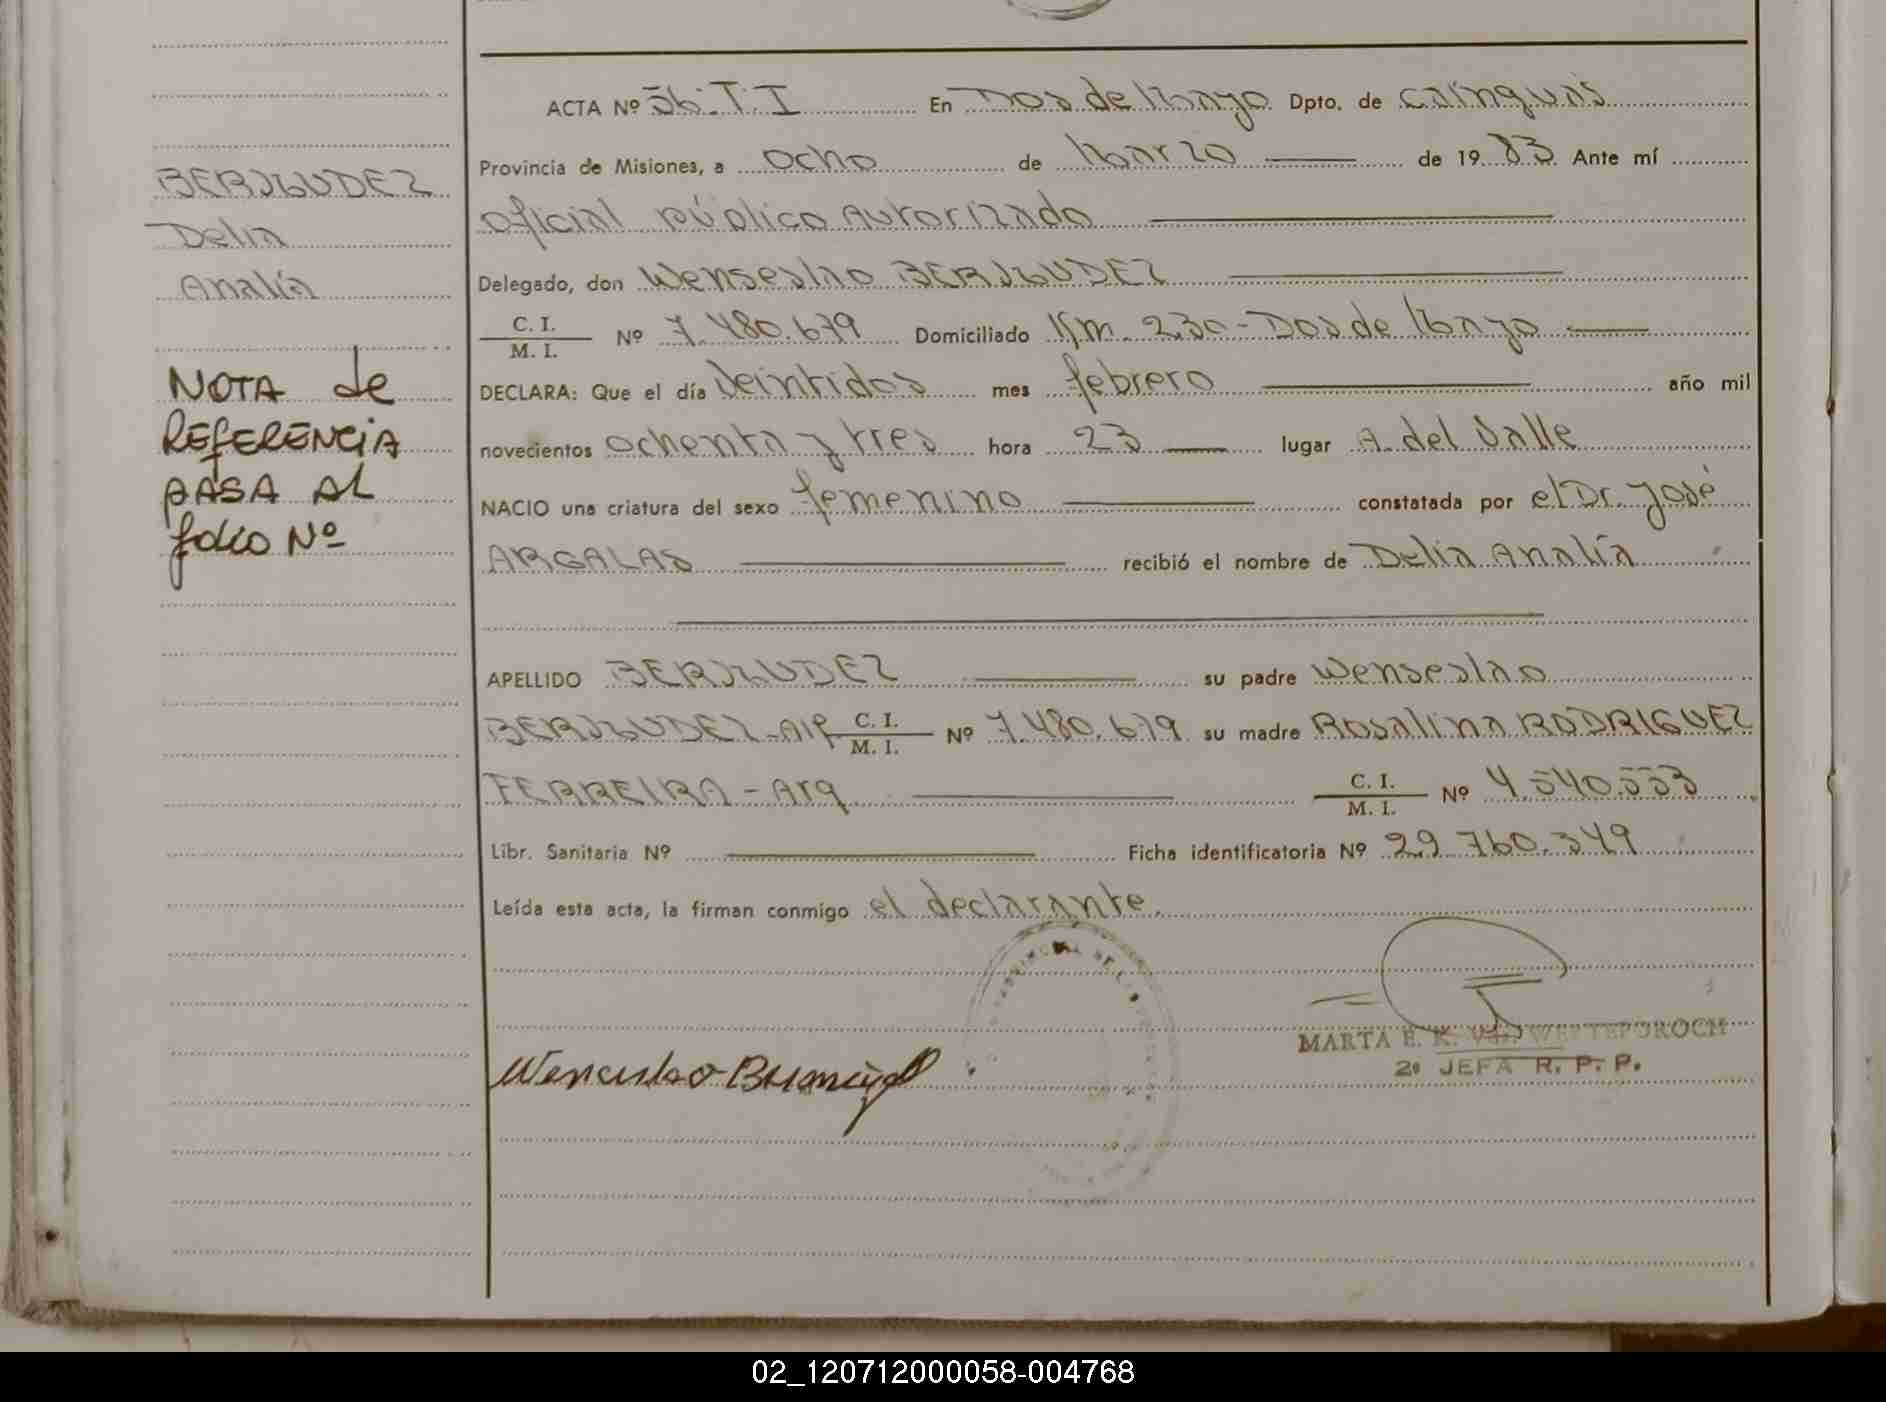 ACTA Nº 56.T.I En Dos de Mayo Dpto. de Cainguás
Provincia de Misiones, a ocho de Marzo de 1983 Ante mí
Oficial Público Autorizado
Delegado, don Wenseslao BERMUDEZ
C. I. / M. I. Nº 7.480.679 Domiciliado Km. 230-Dos de Mayo
DECLARA: Que el día Veintidos mes febrero año mil
novecientos ochenta y tres hora 23 lugar A. del Valle
NACIO una criatura del sexo femenino constatada por el Dr. José
ARGALAS recibió el nombre de Delia Analía
APELLIDO BERMUDEZ su padre Wenseslao
BERMUDEZ-Arg C. I. / M. I. Nº 7.480.679 su madre Rosalina RODRIGUEZ
FERREIRA-Arg C. I. / M. I. Nº 4.540.553
Libr. Sanitaria Nº Ficha identificatoria Nº 29.760.349
Leída esta acta, la firman conmigo el declarante.
MARTA E. K.
2º JEFA R. P. P.
BERMUDEZ
Delia
Analía
NOTA de
REFERENCIA
PASA AL
folio Nº
02_120712000058-004768